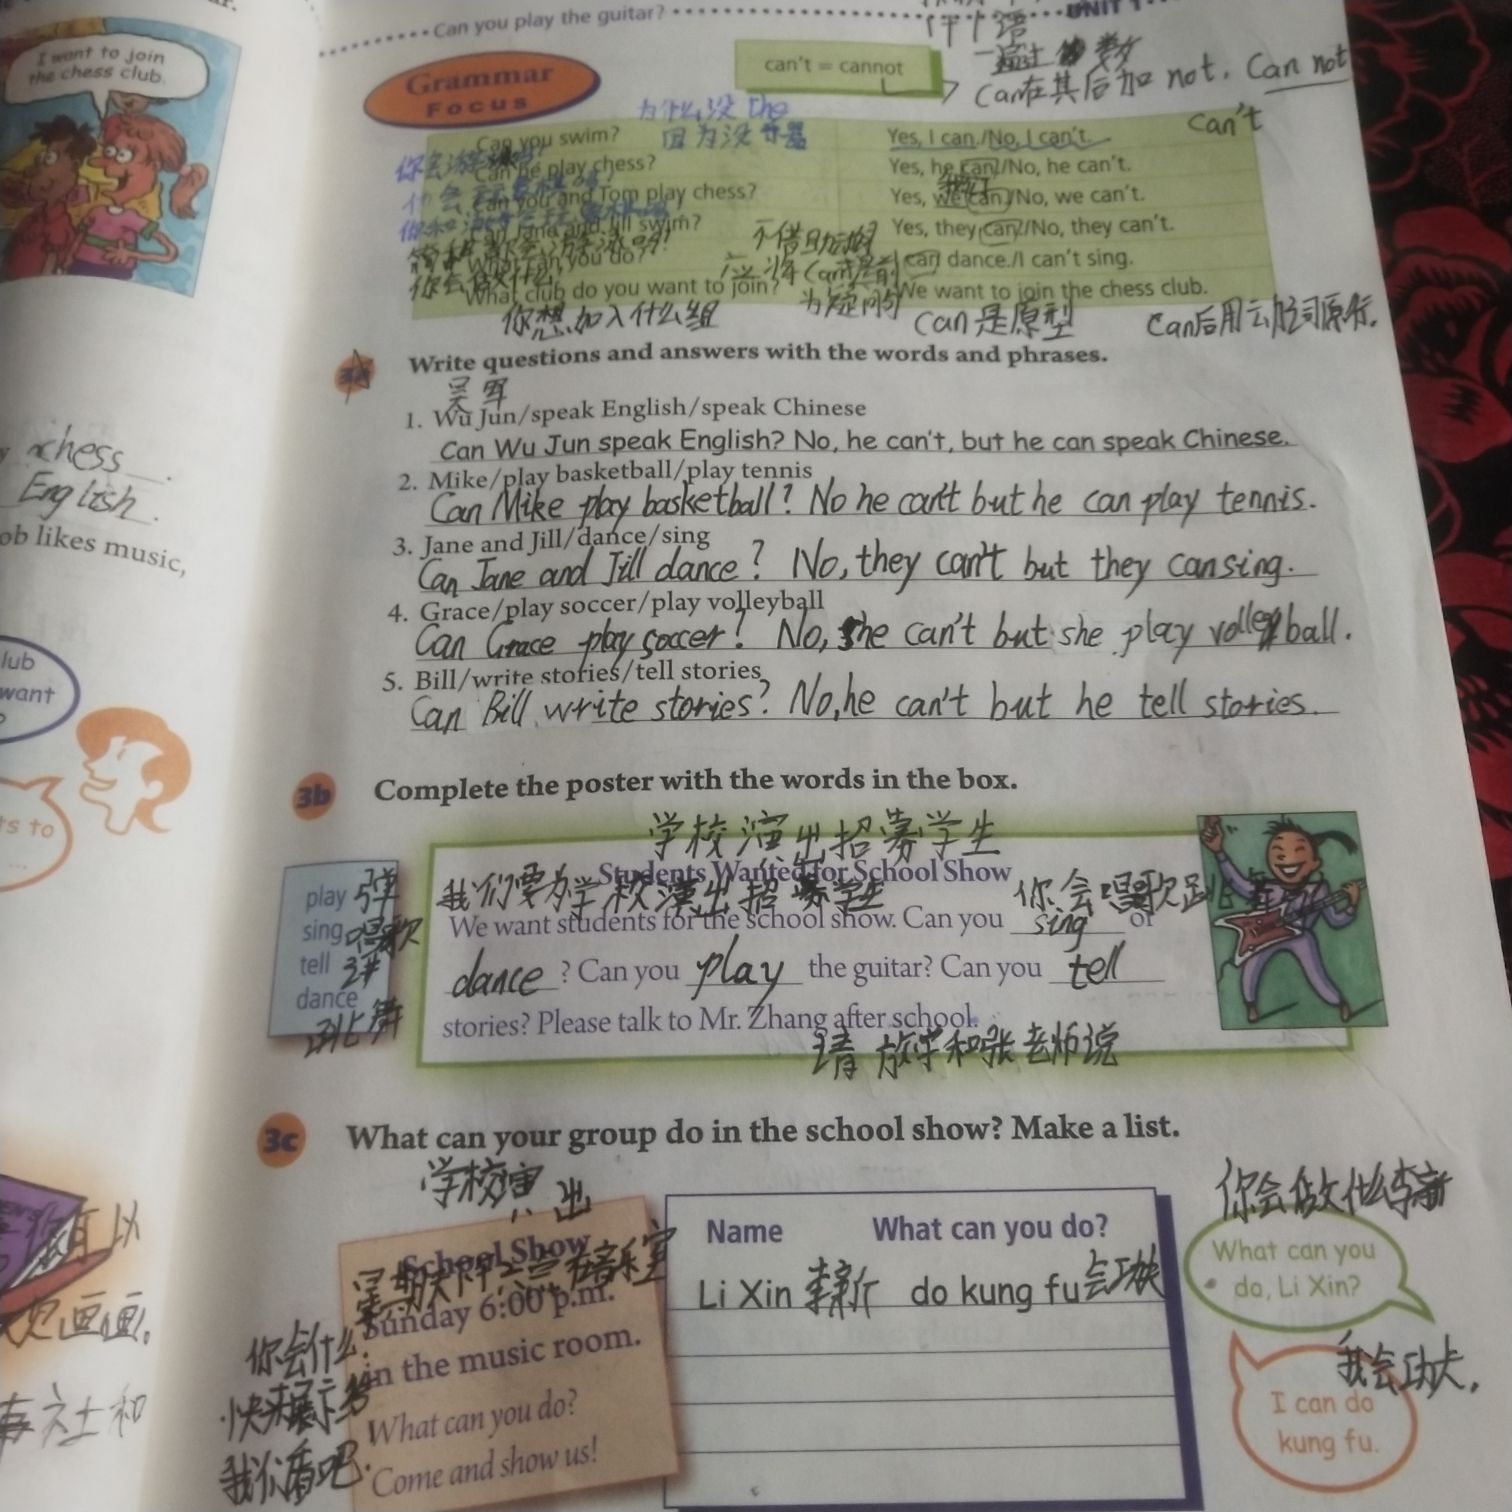 I want to join
the chess club.
chess
English.
ob likes music,
lub
want
ts to
...
Can you play the guitar?
UNIT 1
Grammar
Focus
can't = cannot
Can在其后加 not. Can not
can't
为什么没 the
因为没
Can you swim?
Yes, I can./No, I can't.
Can he play chess?
Yes, he can./No, he can't.
Can you and Tom play chess?
我们
Yes, we can./No, we can't.
Can Jane and Jill swim?
Yes, they can./No, they can't.
What can you do?
I can dance./I can't sing.
你会做什么
What club do you want to join?
We want to join the chess club.
不借助动词
应将Can提前
为疑问句
你想加入什么组
Can 是原型
Can后用动词原形.
3a
Write questions and answers with the words and phrases.
吴军
1. Wu Jun/speak English/speak Chinese
Can Wu Jun speak English? No, he can't, but he can speak Chinese.
2. Mike/play basketball/play tennis
Can Mike play basketball? No he can't but he can play tennis.
3. Jane and Jill/dance/sing
Can Jane and Jill dance? No, they can't but they can sing.
4. Grace/play soccer/play volleyball
Can Grace play soccer! No, she can't but she play volleyball.
5. Bill/write stories/tell stories
Can Bill write stories? No, he can't but he tell stories.
3b
Complete the poster with the words in the box.
学校演出招募学生
play 弹
sing 唱歌
tell 讲
dance
跳舞
Students Wanted for School Show
我们要为学校演出招募学生
你会唱歌跳舞
We want students for the school show. Can you sing or
dance ? Can you play the guitar? Can you tell
stories? Please talk to Mr. Zhang after school.
请放学和张老师说
3c
What can your group do in the school show? Make a list.
学校演出
School Show
Sunday 6:00 p.m.
in the music room.
What can you do?
Come and show us!
你会什么?
快来展示给
我们看吧.
Name What can you do?
Li Xin 李新 do kung fu 会功夫
你会做什么李新
What can you
do, Li Xin?
我会功夫.
I can do
kung fu.
画画。